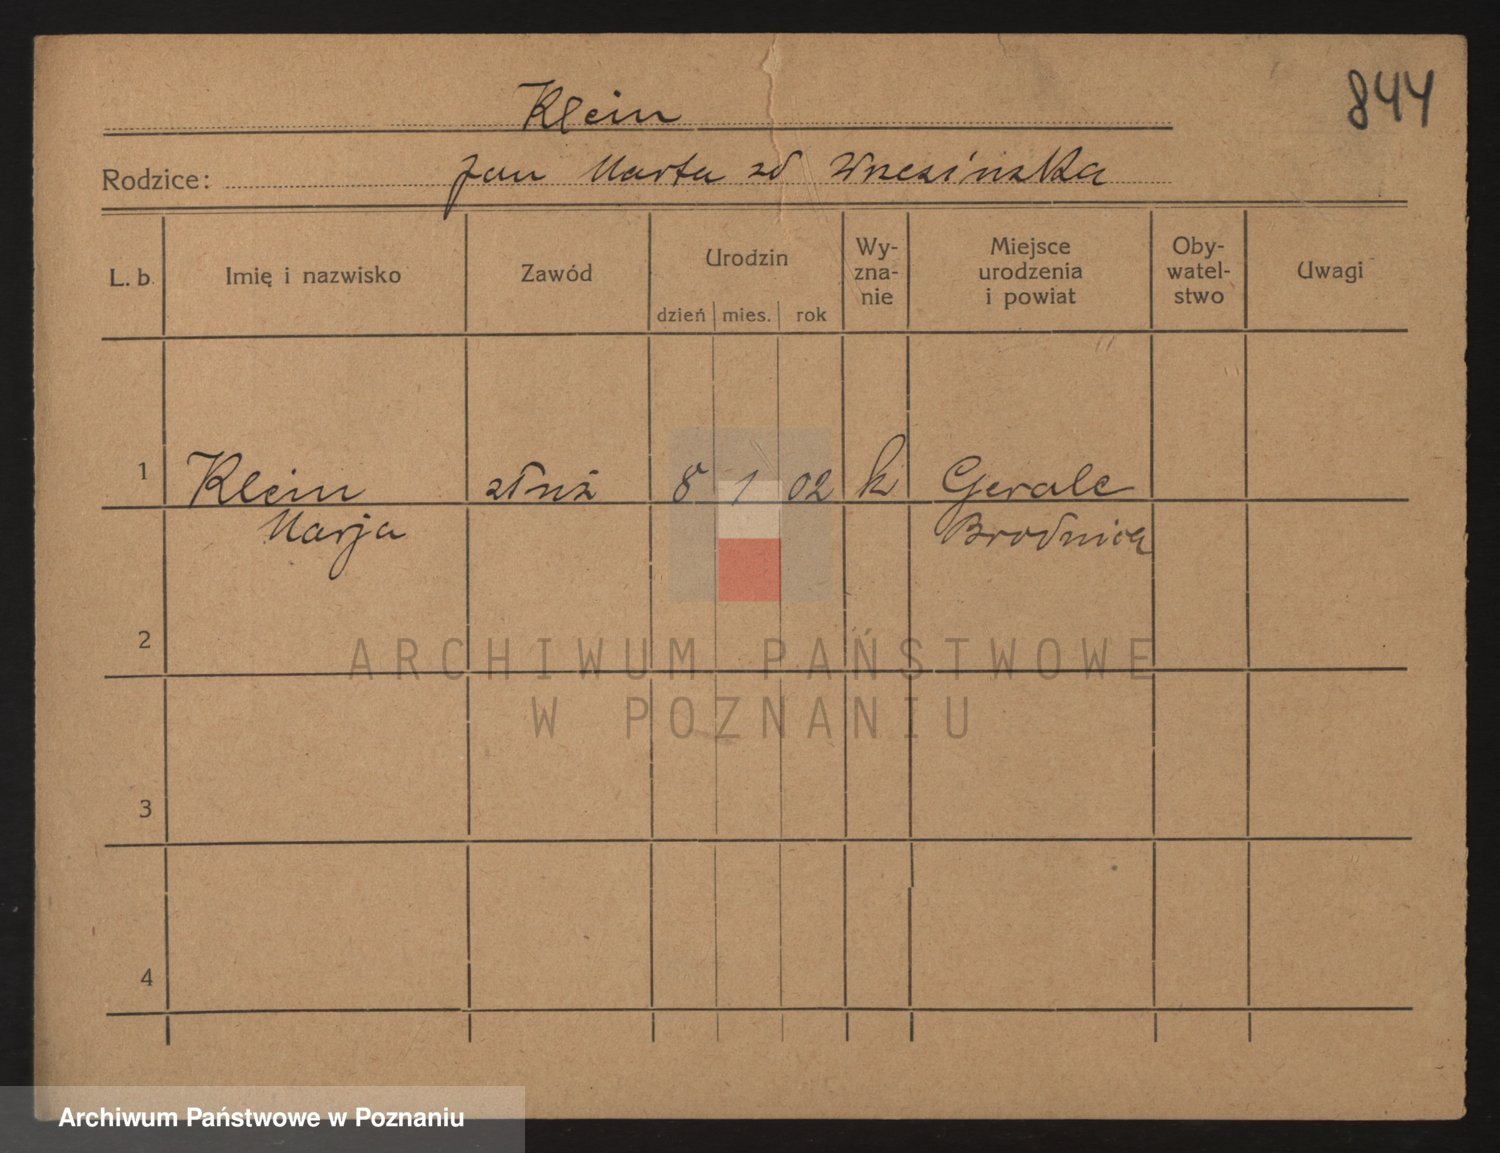 844
Klein
Rodzice: Jan Marta zd Wrzesińska
L. b. Imię i nazwisko Zawód Urodzin dzień mies. rok Wy-zna-nie Miejsce urodzenia i powiat Oby-watel-stwo Uwagi
1 Klein służ 8 1 02 k Gorale
Marja Brodnica
2
3
4
ARCHIWUM PAŃSTWOWE
W POZNANIU
Archiwum Państwowe w Poznaniu